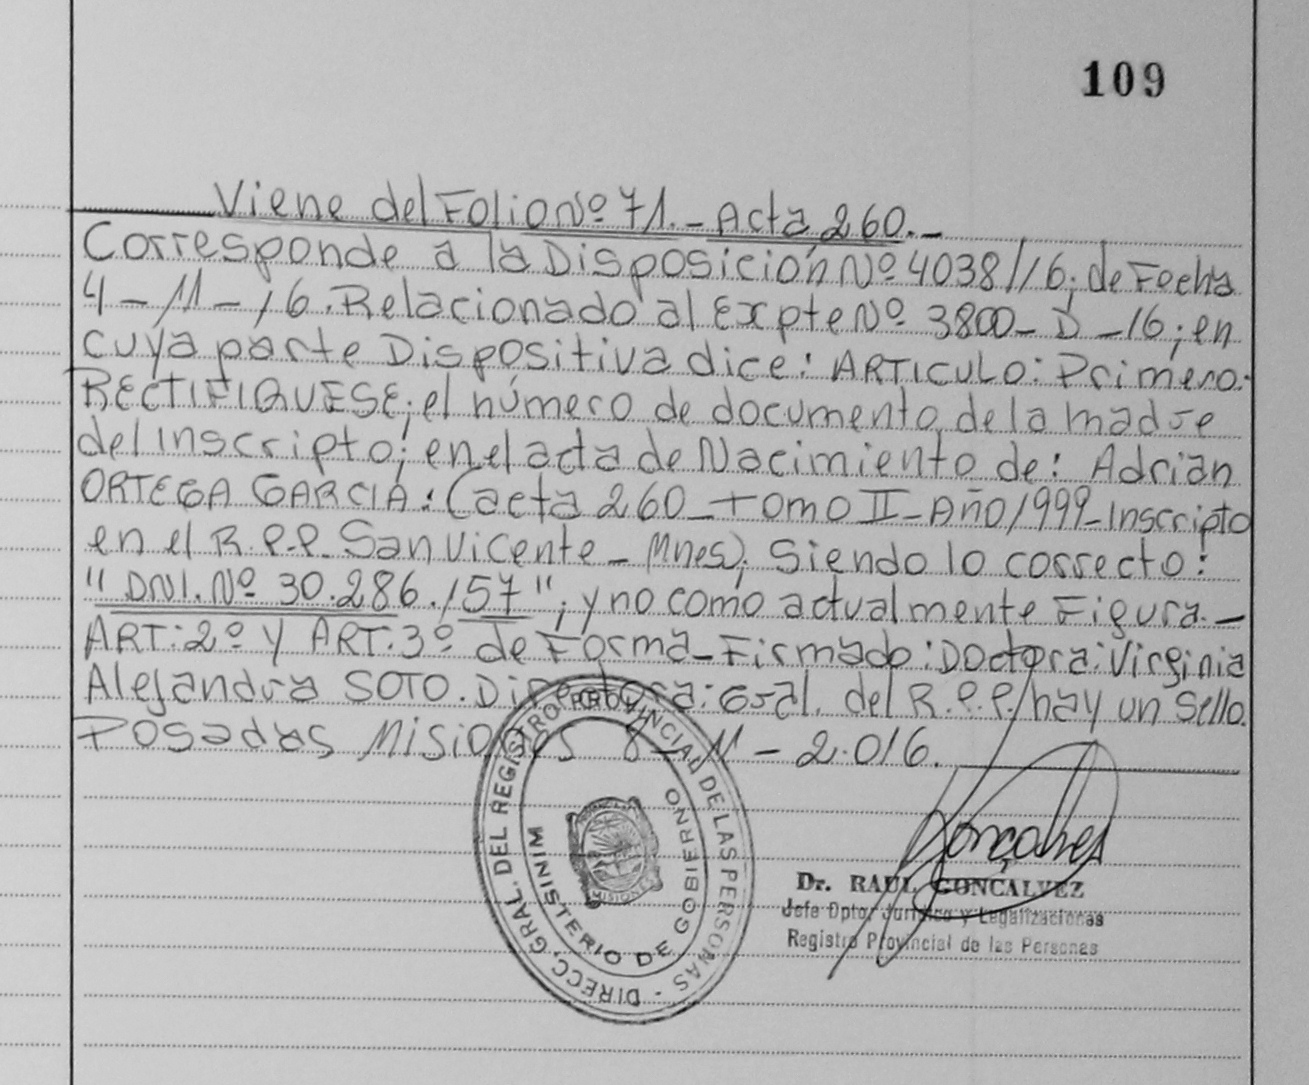 109
Viene del Folio Nº 71.- Acta 260.-
Corresponde a la Disposición Nº 4038/16; de Fecha
4-11-16. Relacionado al Expte Nº 3800-D-16; en
cuya parte Dispositiva dice: ARTICULO: Primero:
RECTIFIQUESE; el número de documento de la madre
del inscripto; en el acta de Nacimiento de: Adrian
ORTEGA GARCIA: (acta 260-Tomo II-Año 1999-Inscripto
en el R.P.P. San Vicente-Mnes); Siendo lo correcto:
"DNI. Nº 30.286.157"; y no como actualmente Figura.-
ART: 2º Y ART. 3º de Forma-Firmado: Doctora: Virginia
Alejandra SOTO. Directora: Gral. del R.P.P. hay un Sello.
Posadas Misiones 8-11-2.016.
DIRECC. GRAL. DEL REGISTRO PROVINCIAL DE LAS PERSONAS -
MINISTERIO DE GOBIERNO
MISIONES
Gonçalves
Dr. RAUL GONCALVEZ
Jefe Dpto. Jurídico y Legalizaciones
Registro Provincial de las Personas